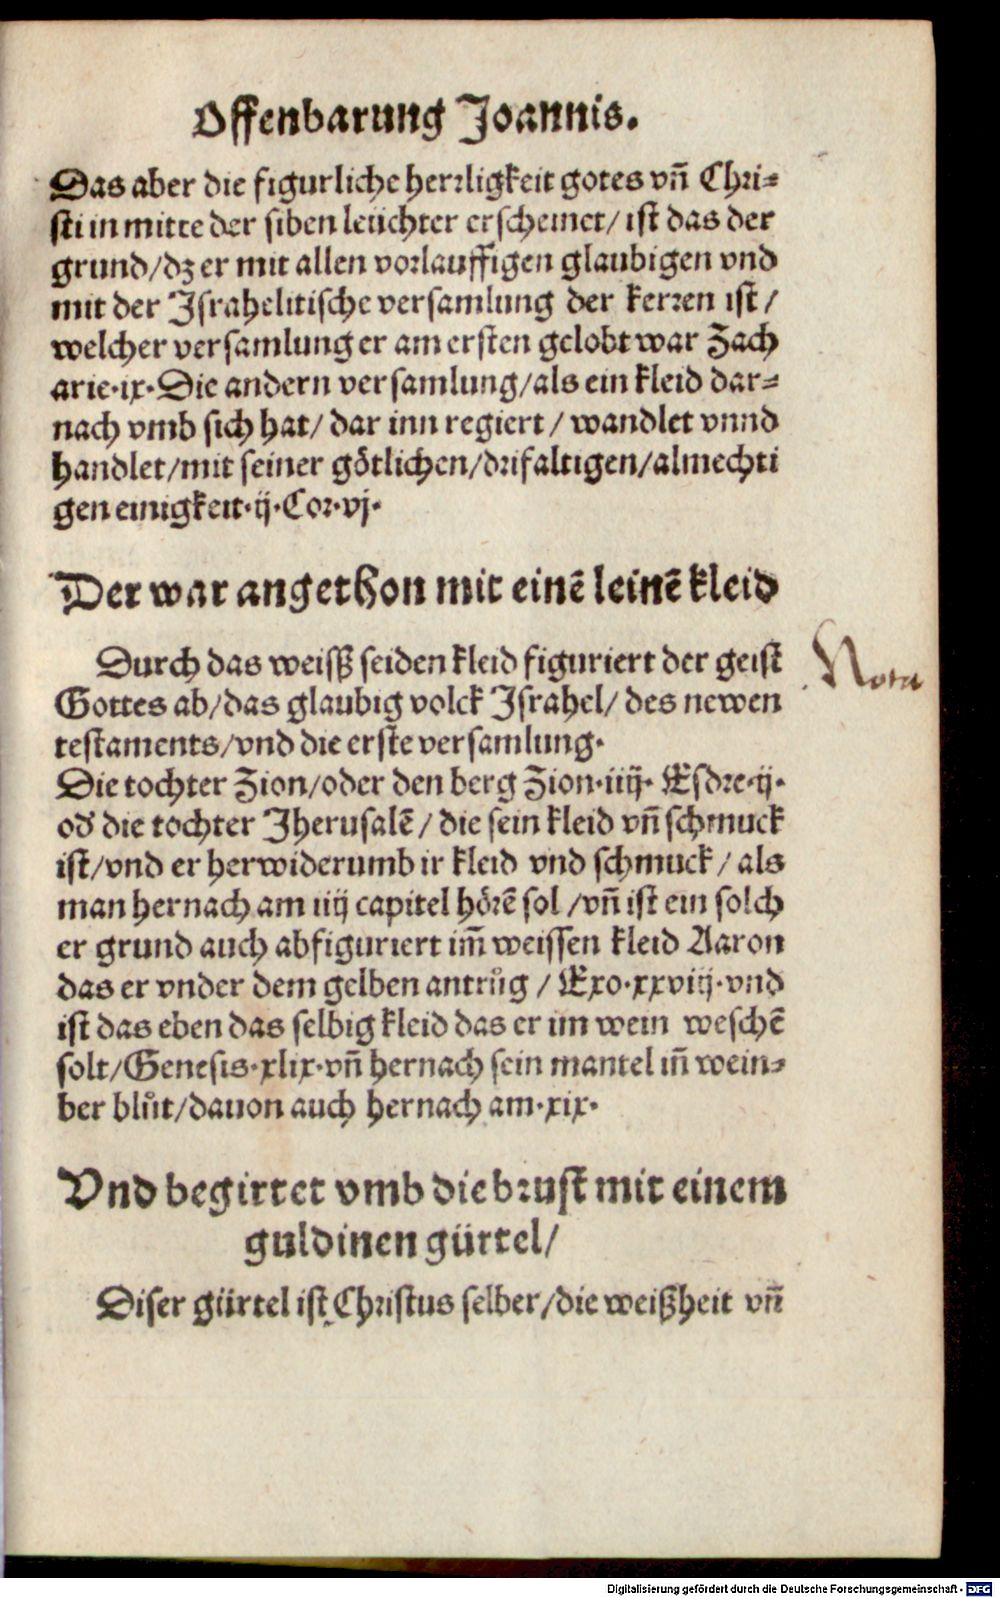 Offenbarung Joannis.
Das aber die figurliche herrligkeit gotes vñ Chri⸗
sti in mitte der siben leüchter erscheinet/ ist das der
grund/dz er mit allen vorlauffigen glaubigen vnd
mit der Israhelitische versamlung der kerzen ist/
welcher versamlung er am ersten gelobt war Zach
arie·ix·Die andern versamlung/als ein kleid dar⸗
nach vmb sich hat/ dar inn regiert / wandlet vnnd
handlet/mit seiner götlichen/drifaltigen/almechti
gen einigkeit·ij·Cor·vj·
Der war angethon mit einē leinē kleid
Durch das weissz seiden kleid figuriert der geist
Gottes ab/das glaubig volck Israhel/ des newen
testaments/vnd die erste versamlung·
Die tochter Zion/oder den berg Zion·iiij· Esdre·ij·
od' die tochter Jherusalē/ die sein kleid vñ schmuck
ist/vnd er herwiderumb ir kleid vnd schmuck/ als
man hernach am iiij capitel hörē sol /vñ ist ein solch
er grund auch abfiguriert im̄ weissen kleid Aaron
das er vnder dem gelben antrůg / Exo·xxviij·vnd
ist das eben das selbig kleid das er im wein weschē
solt/Genesis·xlix·vñ hernach sein mantel in̄ wein⸗
ber blůt/dauon auch hernach am·xix·
Vnd begirtet vmb die brust mit einem
guldinen gürtel/
Diser gürtel ist Christus selber/die weißheit vñ
Nota
Digitalisierung gefördert durch die Deutsche Forschungsgemeinschaft - DFG